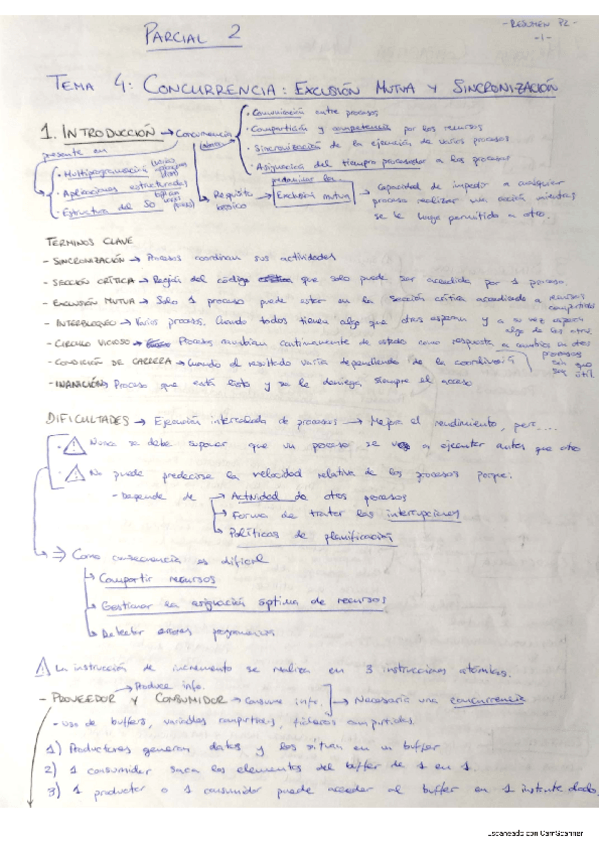 - RESUMEN P2 -
- 1 -
PARCIAL 2
TEMA 4: CONCURRENCIA: EXCLUSIÓN MUTUA Y SINCRONIZACIÓN
1. INTRODUCCIÓN → Concurrencia
· Comunicación entre procesos
· Compartición y competencia por los recursos
· Sincronización de la ejecución de varios procesos
· Asignación del tiempo procesador a los procesos
presente en
· Multiprogramación
· Aplicaciones estructuradas
· Estructura del SO
Requisito básico
Exclusión mutua → Capacidad de impedir a cualquier
proceso realizar una acción mientras
se le haya permitido a otro.
TERMINOS CLAVE
- SINCRONIZACIÓN → Procesos coordinan sus actividades
- SECCIÓN CRÍTICA → Región del código que solo puede ser accedida por 1 proceso
- EXCLUSIÓN MUTUA → Solo 1 proceso puede estar en la sección crítica accediendo a recursos compartidos
- INTERBLOQUEO → Varios procesos. Cuando todos tienen algo que otros esperan y a su vez esperan algo de los otros.
- CIRCULO VICIOSO → Procesos cambian continuamente de estado como respuesta a cambios en otros procesos sin que sea útil.
- CONDICIÓN DE CARRERA → Cuando el resultado varía dependiendo de la coordinación
- INANICIÓN → Proceso que está listo y se le deniega siempre el acceso
DIFICULTADES → Ejecución intercalada de procesos → Mejora el rendimiento, pero....
· Nunca se debe suponer que un proceso se va a ejecutar antes que otro
· No puede predecirse la velocidad relativa de los procesos porque:
- Depende de → Actividad de otros procesos
→ Forma de tratar las interrupciones
→ Políticas de planificación
⇒ Como consecuencia es difícil
→ Compartir recursos
→ Gestionar la asignación óptima de recursos
→ Detectar errores programación
La instrucción de incremento se realiza en 3 instrucciones atómicas.
→ Produce info.
- PROVEEDOR Y CONSUMIDOR → Consume info. → Necesaria una concurrencia
- Uso de buffers, variables compartidas, ficheros compartidos.
1) Productores generan datos y los sitúan en un buffer
2) 1 consumidor saca los elementos del buffer de 1 en 1.
3) 1 productor o 1 consumidor puede acceder al buffer en 1 instante dado.
Escaneado con CamScanner